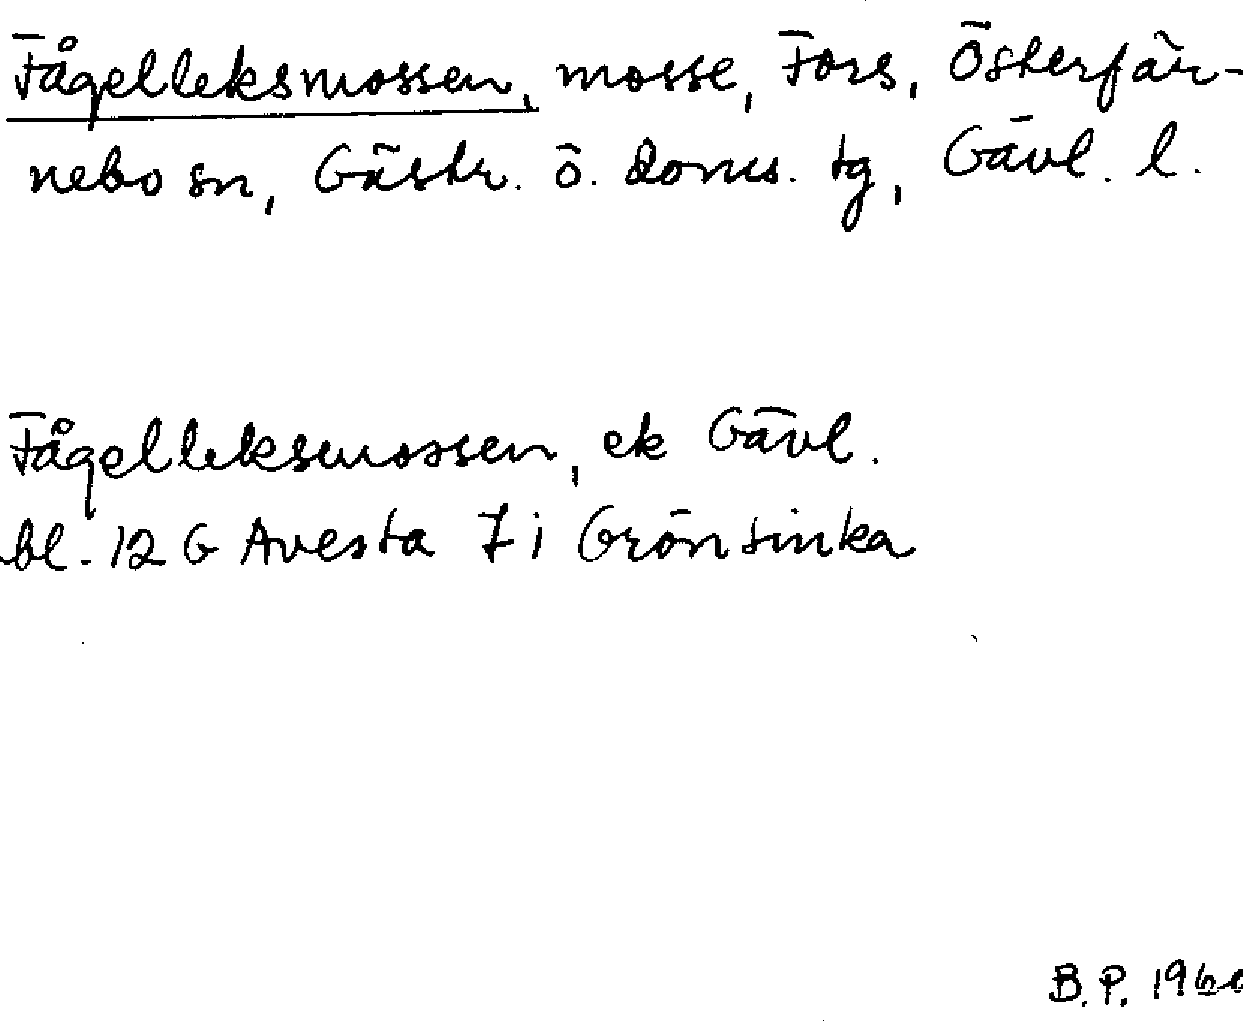 Fågelleksmossen, mosse, Fors, Österfär-
nebo sn, Gästr. ö. doms. tg, Gävl. l.
Fågelleksmossen, ek Gävl.
bl. 12 G Avesta 7 i Grönsinka
B.P.